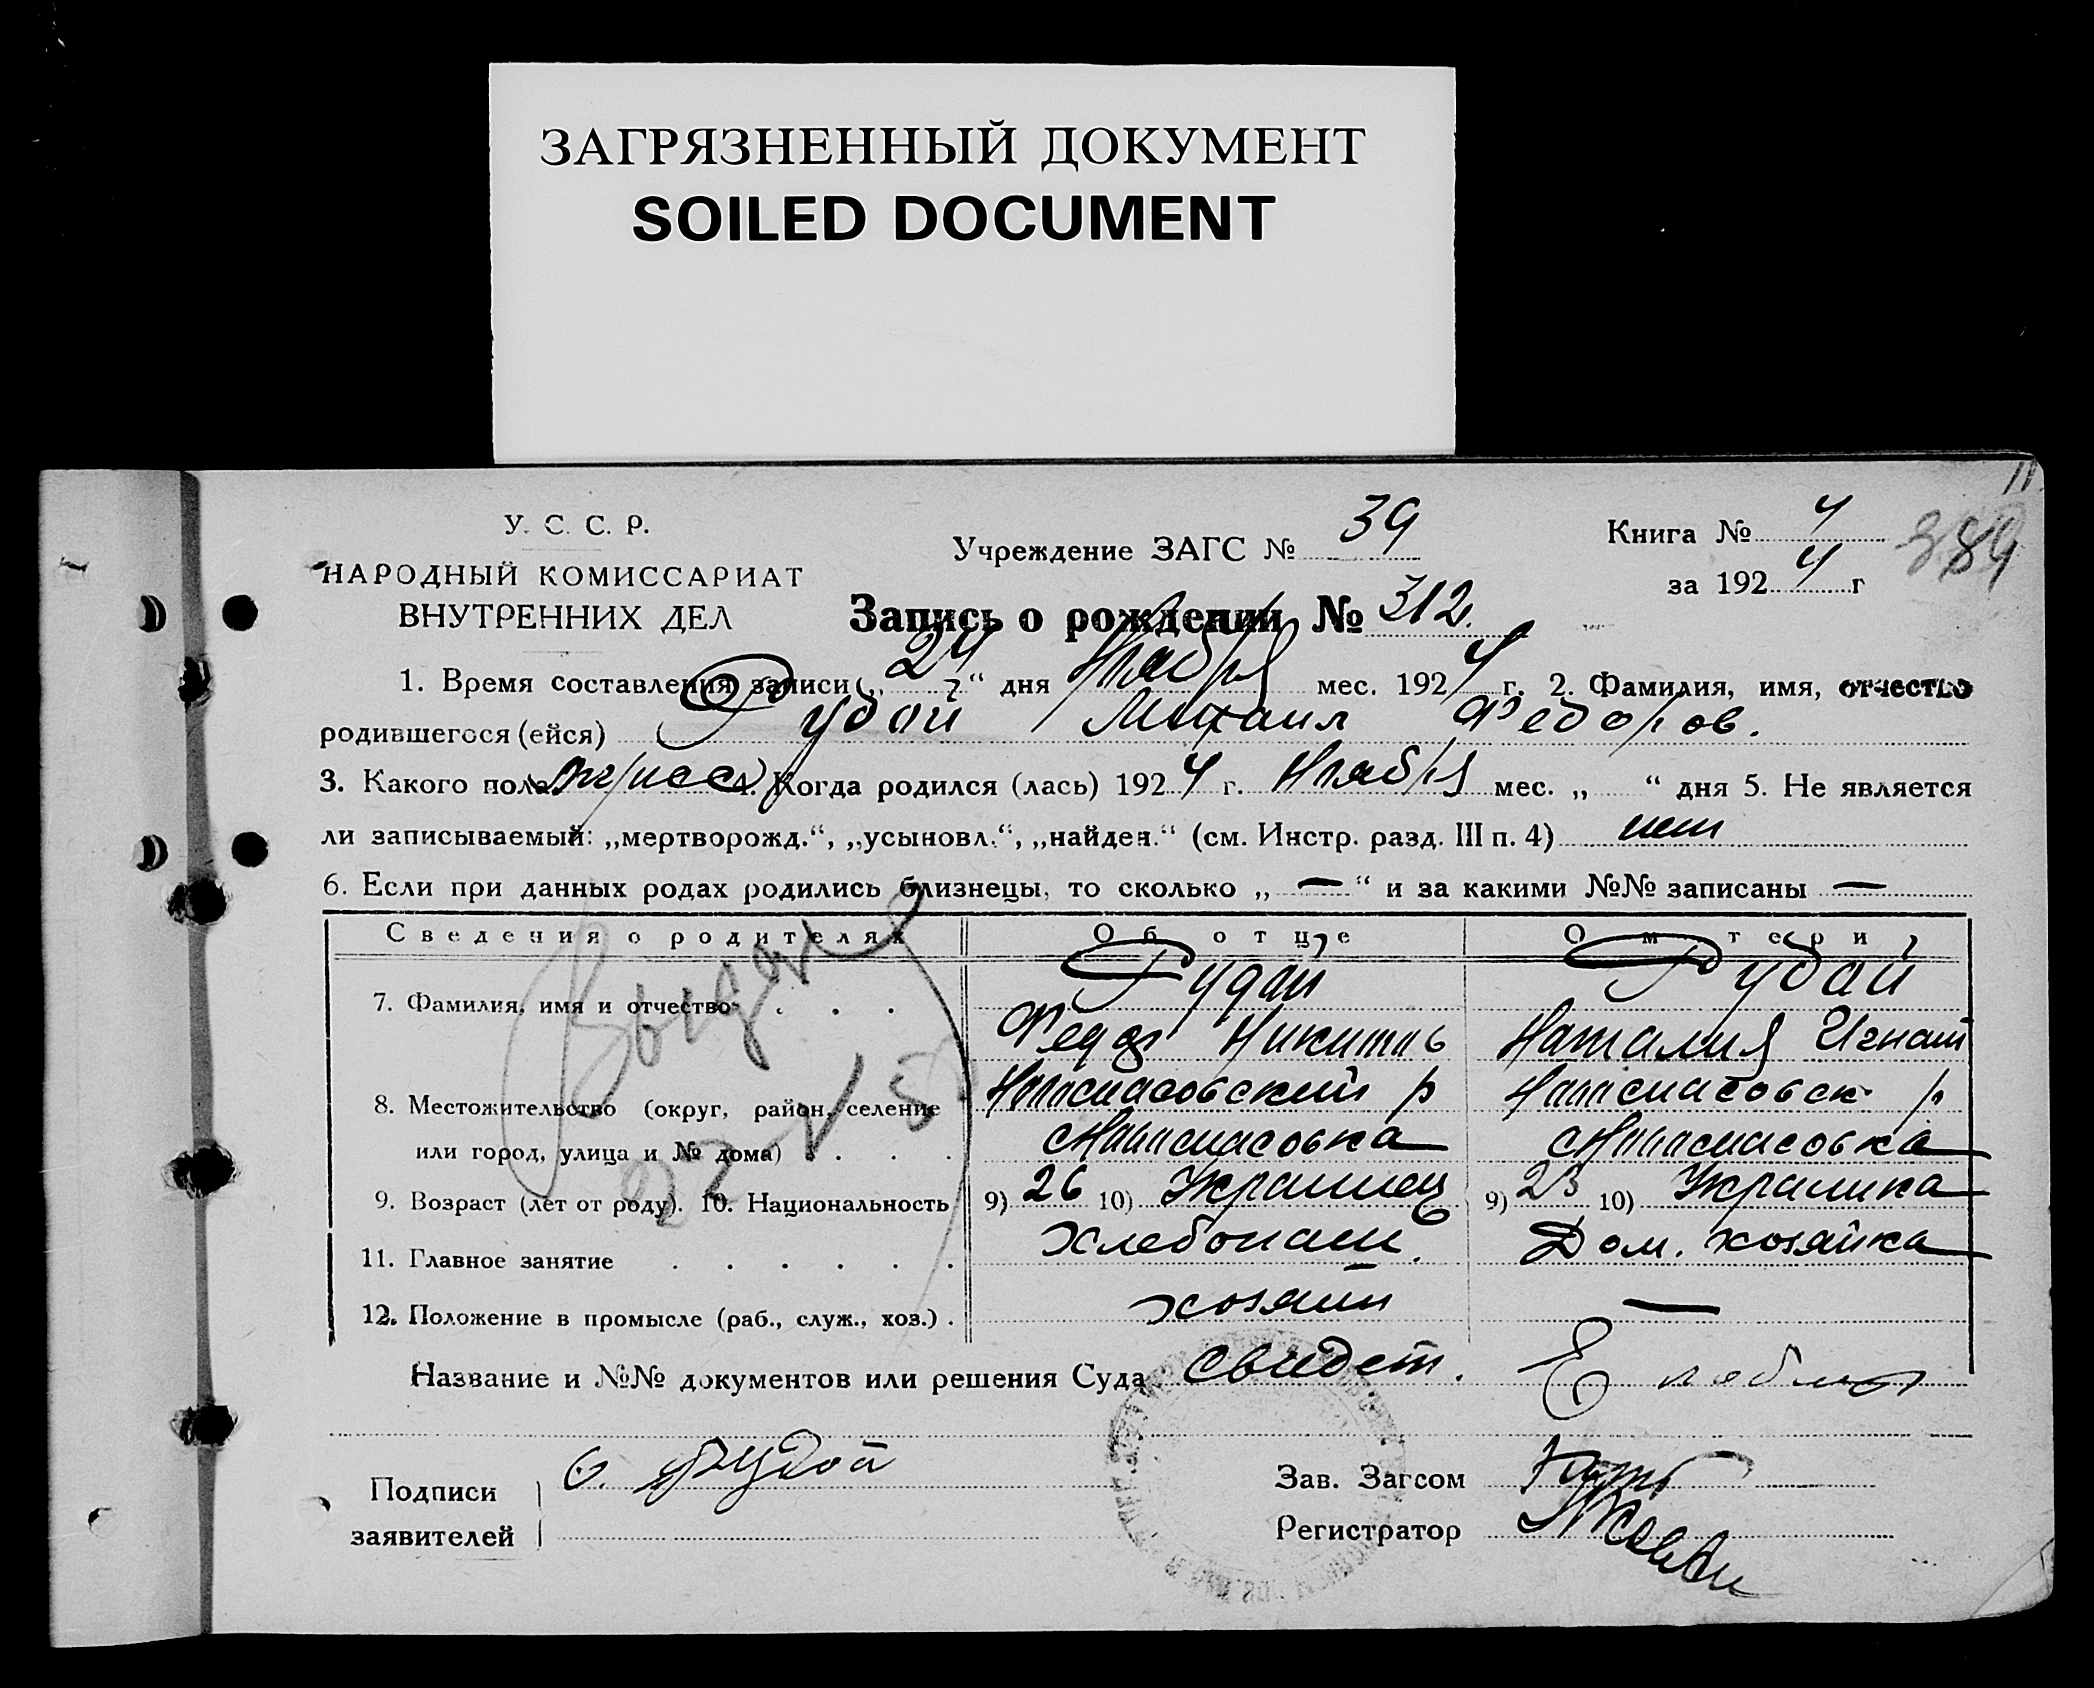 ЗАГРЯЗНЕННЫЙ ДОКУМЕНТ
SOILED DOCUMENT
У. С. С. Р.
НАРОДНЫЙ КОМИССАРИАТ
ВНУТРЕННИХ ДЕЛ
Учреждение ЗАГС № 39
Книга № 4
за 1924 г
389
Запись о рождении № 312.
1. Время составления записи „24“ дня Ноября мес. 1924 г. 2. Фамилия, имя, отчество
родившегося (ейся) Рудой Михаил Федоров.
3. Какого пола 4. Когда родился (лась) 1924 г. Ноября мес. „ “ дня 5. Не является
ли записываемый: „мертворожд.“, „усыновл.“, „найден.“ (см. Инстр. разд. III п. 4) нет
6. Если при данных родах родились близнецы, то сколько „—“ и за какими №№ записаны —
Сведения о родителях Об отце О матери
7. Фамилия, имя и отчество . . . Рудой Рудой
Федор Никитов Наталия Игнат
8. Местожительство (округ, район, селение
или город, улица и № дома) . . .
9. Возраст (лет от роду). 10. Национальность 9) 26 10) Украинец 9) 23 10) Украинка
11. Главное занятие . . . . . . Хлебопаш. Дом. хозяйка
12. Положение в промысле (раб., служ., хоз.) . хозяин —
Выдано
Название и №№ документов или решения Суда свидет.
Подписи
заявителей
Рудой
Зав. Загсом
Регистратор